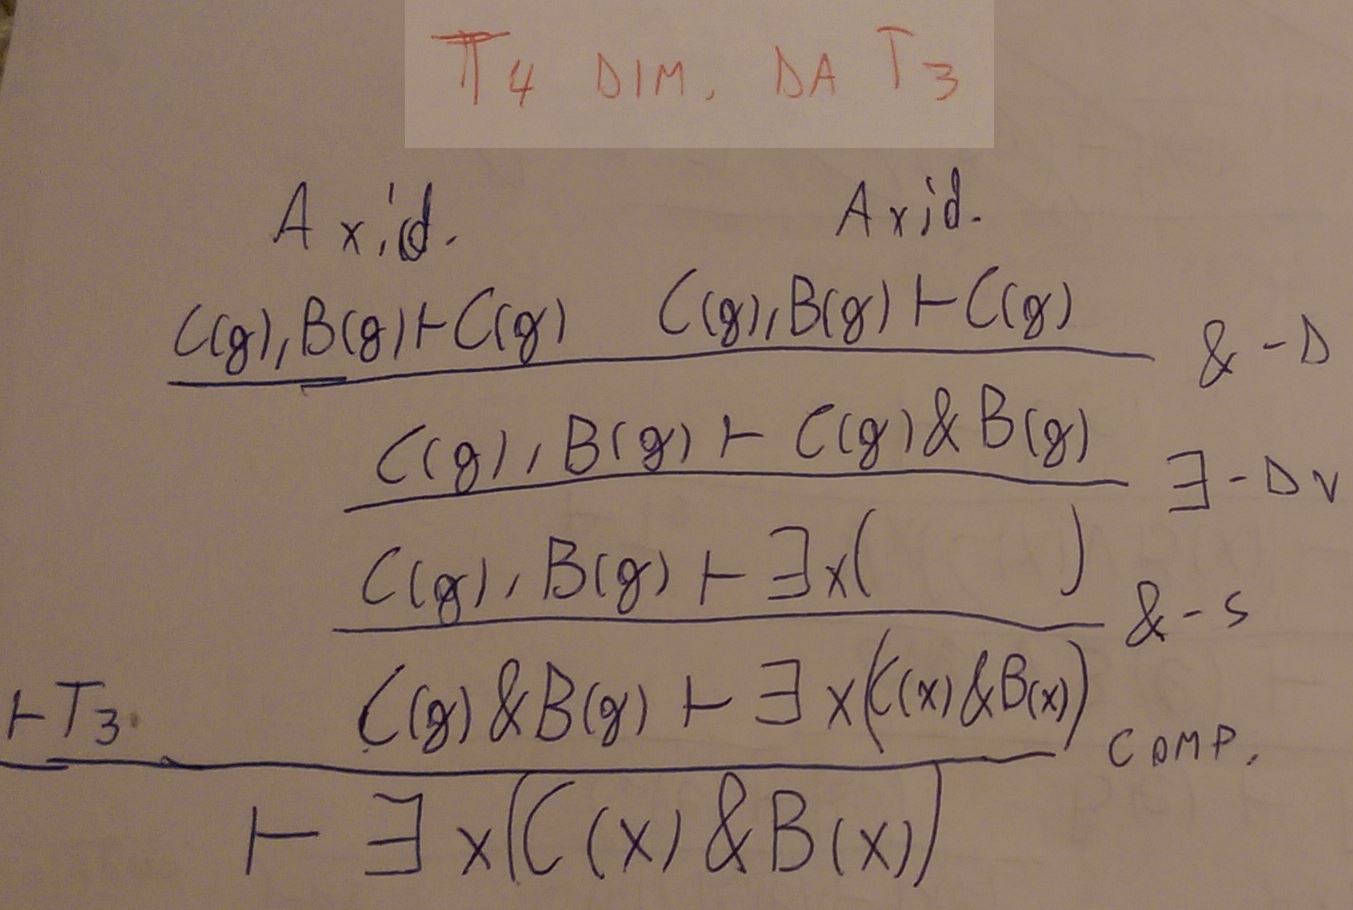 T4 DIM. DA T3
Ax id. Ax id.
C(g), B(g) ⊢ C(g) C(g), B(g) ⊢ C(g)
&-D
C(g), B(g) ⊢ C(g) & B(g)
∃-DV
C(g), B(g) ⊢ ∃x( )
&-S
⊢T3. C(g) & B(g) ⊢ ∃x(C(x) & B(x))
COMP.
⊢ ∃x(C(x) & B(x))